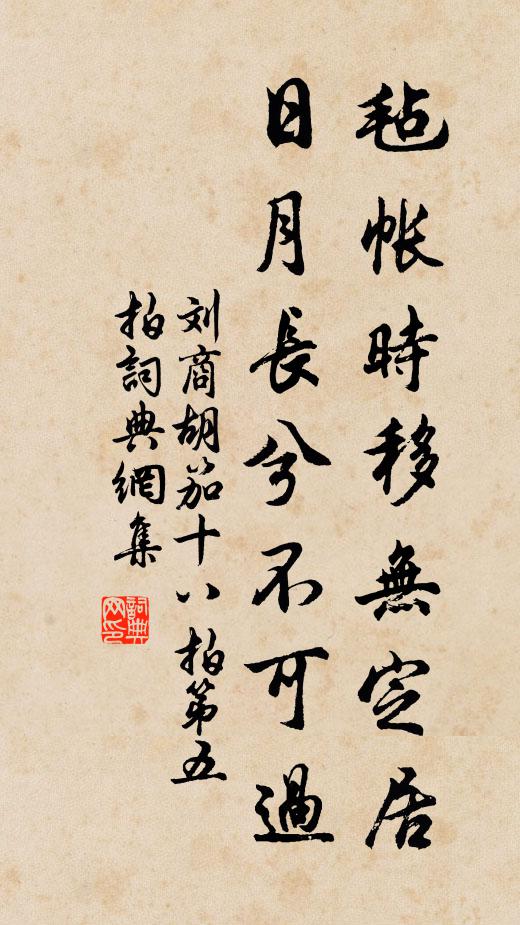 毡帳時移無定居
日月長兮不可過
刘商胡笳十八拍第五
拍詞典網集
詞典
网印